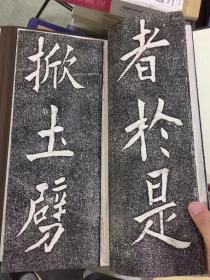 者於是
掀土劈